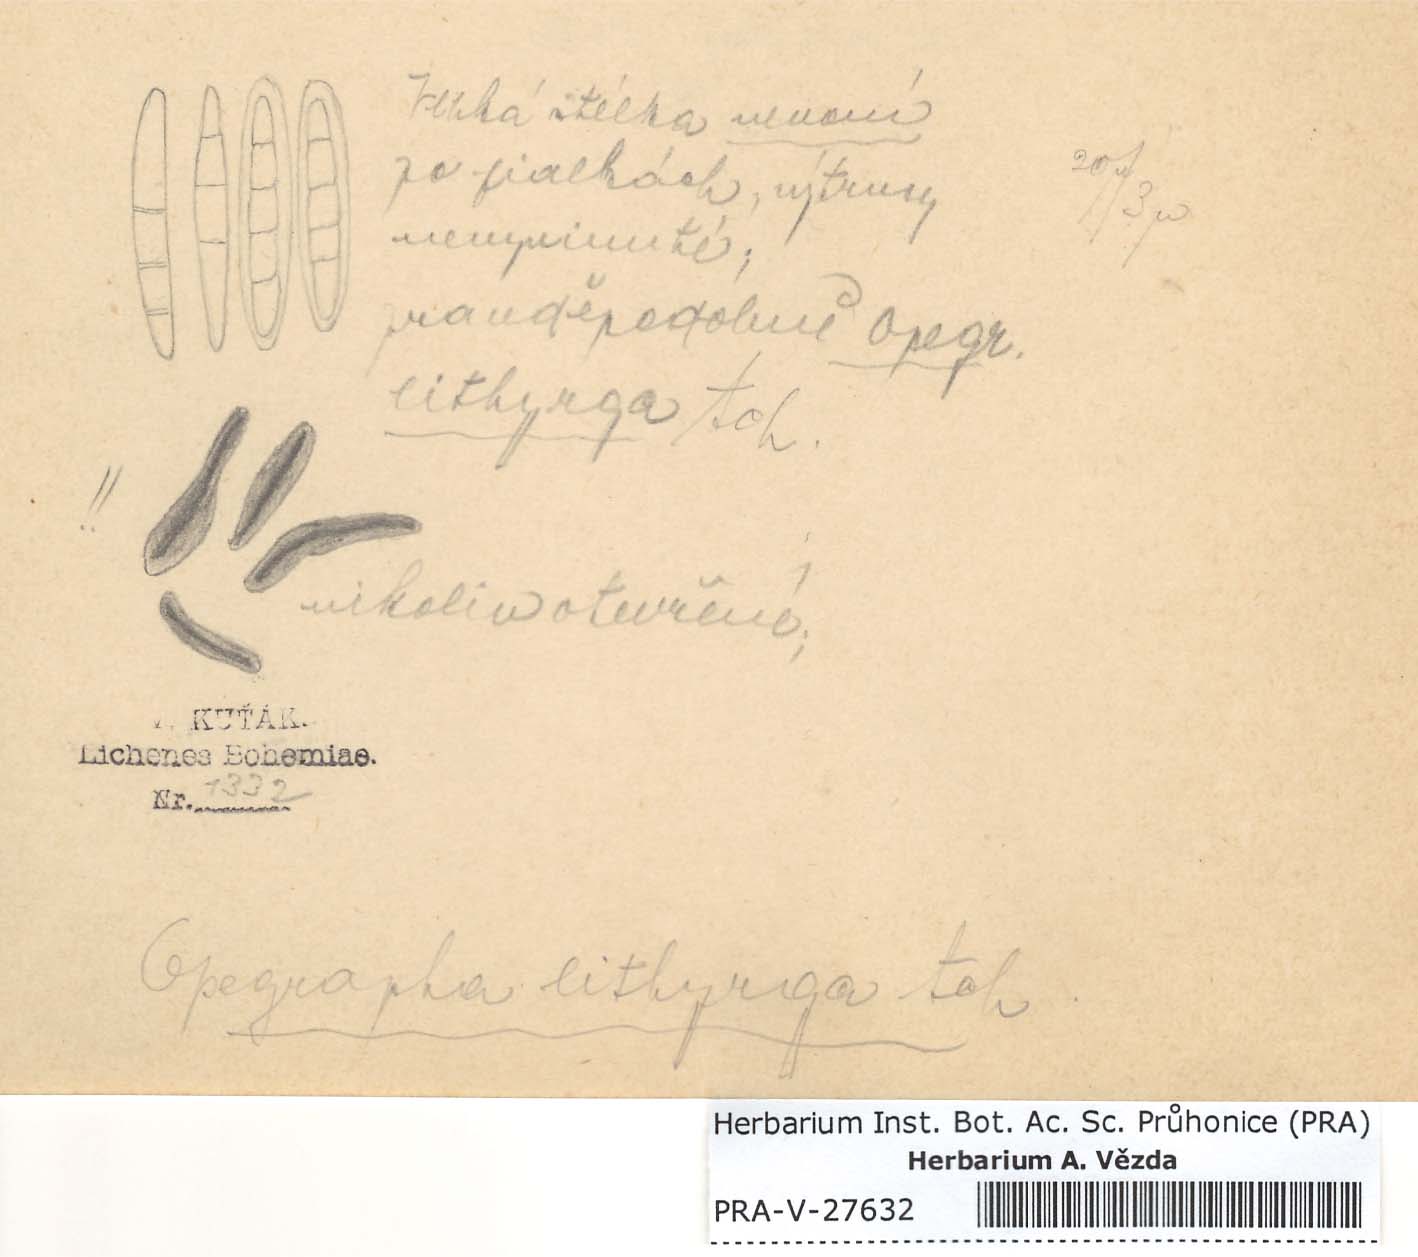 Vlhká stélka nevoní
po fialkách, výtrusy
nevyvinuté;
pravděpodobně Opegr.
lithyrga Ach.
20μ/3μ
!!
nikoliv otevřené;
V. KUŤÁK.
Lichenes Bohemiae.
Nr. 1332
Opegrapha lithyrga Ach.
Herbarium Inst. Bot. Ac. Sc. Průhonice (PRA)
Herbarium A. Vězda
PRA-V-27632